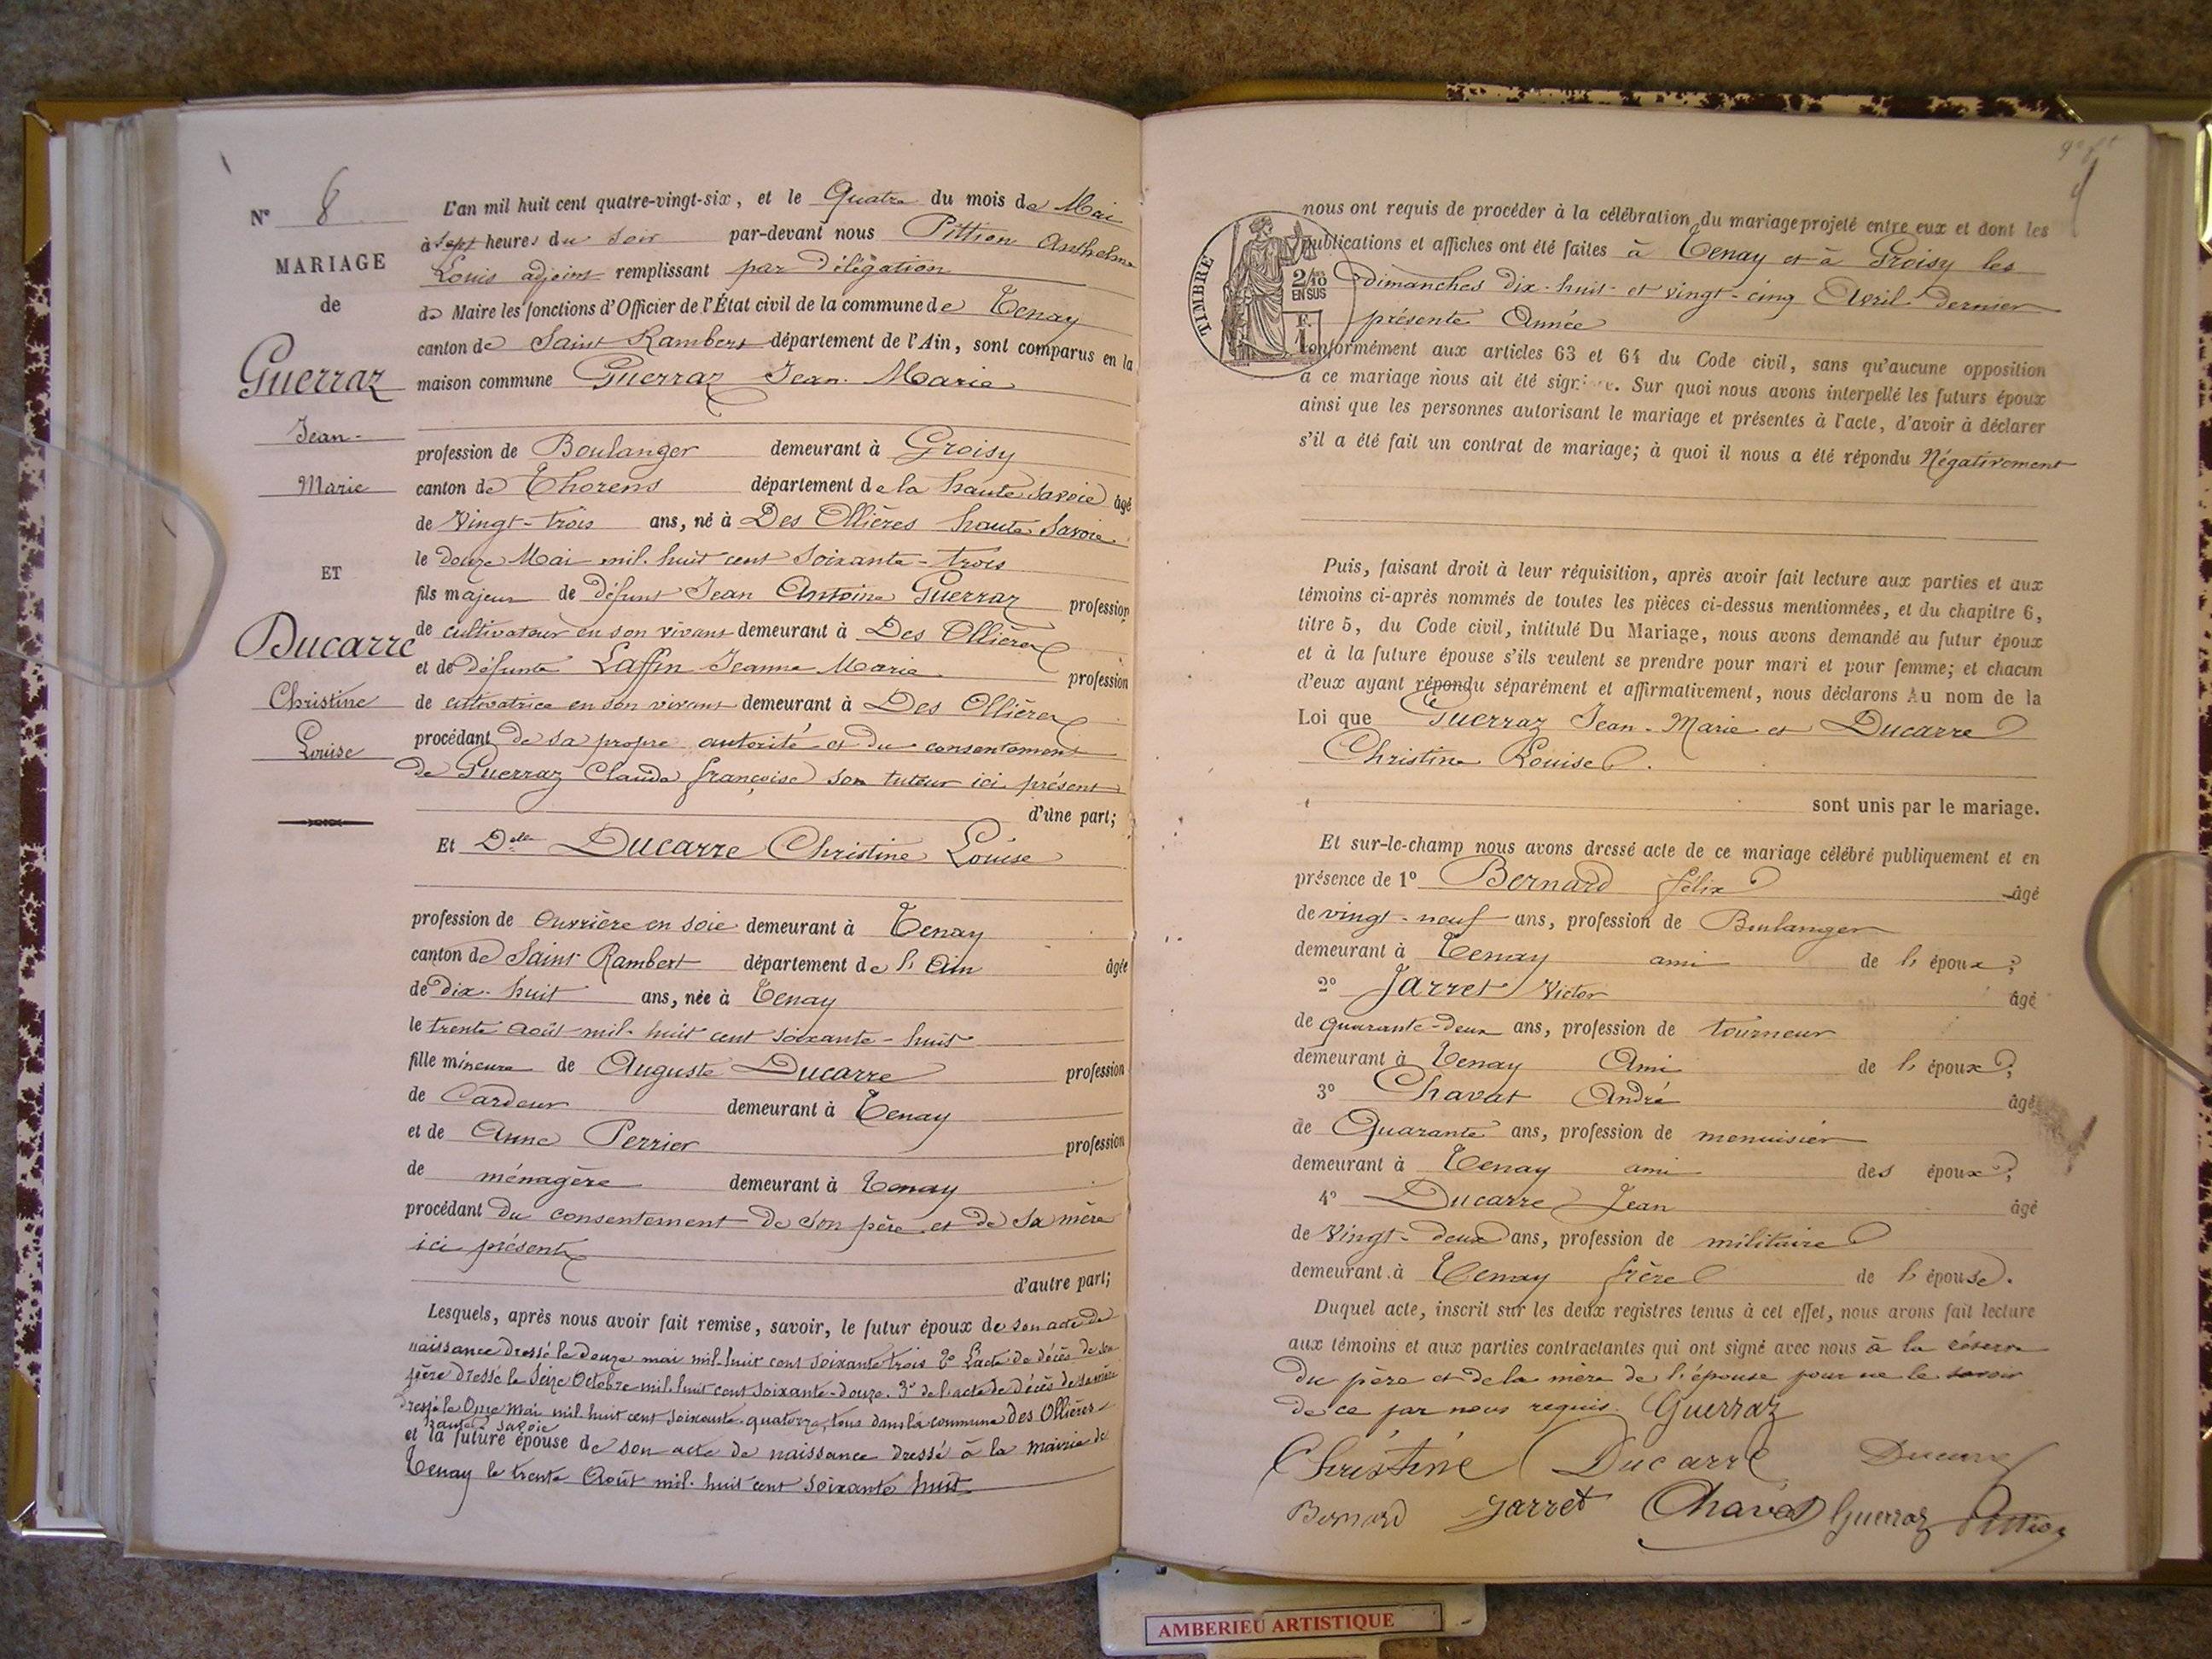 N° 8
MARIAGE
de
Guerraz
Jean-
Marie
ET
Ducarre
Christine
Louise
L'an mil huit cent quatre-vingt-six, et le Quatre du mois de Mai
à sept heures du soir par-devant nous Pittion Anthelme
Louis adjoint remplissant par délégation
de Maire les fonctions d'Officier de l'État civil de la commune de Tenay
canton de Saint Rambert département de l'Ain, sont comparus en la
maison commune Guerraz Jean-Marie
profession de Boulanger demeurant à Groisy
canton de Thorens département de la haute Savoie âgé
de Vingt-trois ans, né à Des Ollières haute Savoie
le douze Mai mil huit cent soixante-trois
fils majeur de défunt Jean Antoine Guerraz profession
de cultivateur en son vivant demeurant à Des Ollières
et de défunte Laffin Jeanne Marie profession
de cultivatrice en son vivant demeurant à Des Ollières
procédant de sa propre autorité et du consentement
de Guerraz Claude françoise son tuteur ici présent
d'une part;
Et Delle Ducarre Christine Louise
profession de ouvrière en soie demeurant à Tenay
canton de Saint Rambert département de l'Ain âgée
de dix-huit ans, née à Tenay
le trente août mil huit cent soixante-huit
fille mineure de Auguste Ducarre profession
de Cardeur demeurant à Tenay
et de Anne Perrier profession
de ménagère demeurant à Tenay
procédant du consentement de son père et de sa mère
ici présents
d'autre part;
Lesquels, après nous avoir fait remise, savoir, le futur époux de son acte de
naissance dressé le douze mai mil huit cent soixante trois 2° L'acte de décès de son
père dressé le Seize Octobre mil huit cent soixante-douze. 3° de l'acte de décès de sa mère
dressé le Onze Mai mil huit cent soixante-quatorze, tous dans la commune des Ollières
haute Savoie
et la future épouse de son acte de naissance dressé à la mairie de
Tenay le trente Août mil huit cent soixante huit
TIMBRE
2/10
EN SUS
F.
1
nous ont requis de procéder à la célébration du mariage projeté entre eux et dont les
publications et affiches ont été faites à Tenay et à Groisy les
dimanches dix-huit et vingt-cinq Avril dernier
présente Année
conformément aux articles 63 et 64 du Code civil, sans qu'aucune opposition
à ce mariage nous ait été signifiée. Sur quoi nous avons interpellé les futurs époux
ainsi que les personnes autorisant le mariage et présentes à l'acte, d'avoir à déclarer
s'il a été fait un contrat de mariage; à quoi il nous a été répondu Négativement
Puis, faisant droit à leur réquisition, après avoir fait lecture aux parties et aux
témoins ci-après nommés de toutes les pièces ci-dessus mentionnées, et du chapitre 6,
titre 5, du Code civil, intitulé Du Mariage, nous avons demandé au futur époux
et à la future épouse s'ils veulent se prendre pour mari et pour femme; et chacun
d'eux ayant répondu séparément et affirmativement, nous déclarons Au nom de la
Loi que Guerraz Jean-Marie et Ducarre
Christine Louise.
sont unis par le mariage.
Et sur-le-champ nous avons dressé acte de ce mariage célébré publiquement et en
présence de 1° Bernard félix âgé
de vingt-neuf ans, profession de Boulanger
demeurant à Tenay ami de l'époux;
2° Jarret Victor âgé
de quarante-deux ans, profession de tourneur
demeurant à Tenay Ami de l'époux;
3° Chavat André âgé
de Quarante ans, profession de menuisier
demeurant à Tenay ami des époux;
4° Ducarre Jean âgé
de Vingt-deux ans, profession de militaire
demeurant à Tenay frère de l'épouse.
Duquel acte, inscrit sur les deux registres tenus à cet effet, nous avons fait lecture
aux témoins et aux parties contractantes qui ont signé avec nous à la réserve
du père et de la mère de l'épouse pour ne le savoir
de ce par nous requis. Guerraz
Christine Ducarre Ducarre
Bernard Jarret Chavat Guerraz Pittion
AMBERIEU ARTISTIQUE